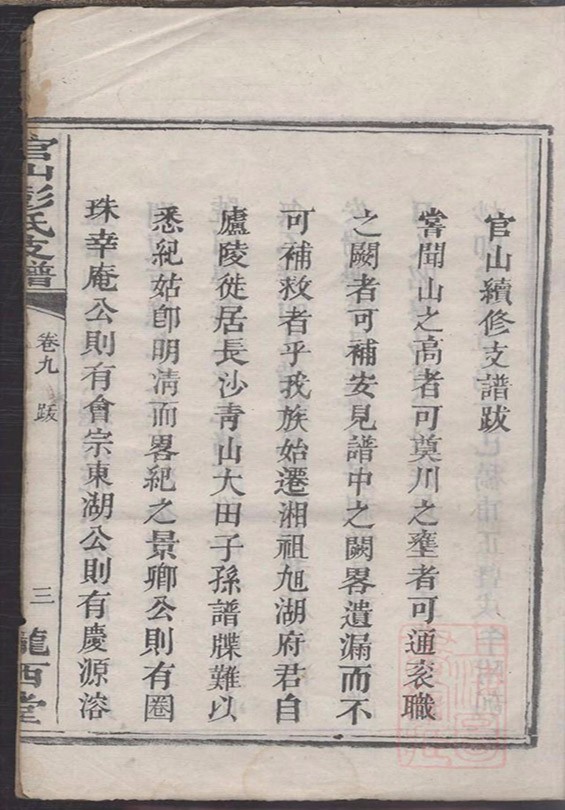 官山續修支譜跋
嘗聞山之高者可奠川之壅者可通袞職
之闕者可補安見譜中之闕畧遺漏而不
可補救者乎我族始遷湘祖旭湖府君自
廬陵徙居長沙青山大田子孫譜牒難以
悉紀姑卽明清而畧紀之景卿公則有圈
珠幸庵公則有會宗東湖公則有慶源溶
官山彭氏支譜
卷九
跋
三
隴西堂